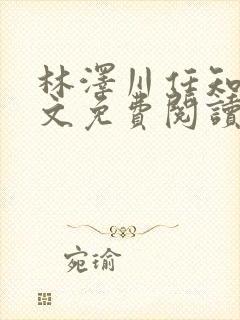 林澤川任知
文免費閱讀
宛瑜